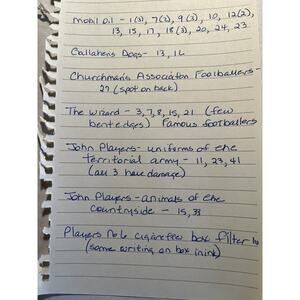 Mobil Oil - 1(3), 7(2), 9(2), 10, 12(2),
13, 15, 17, 18(3), 20, 24, 23
Callahers Dogs - 13, 16
Churchmans Association Footballers -
27 (spot on back)
The Wizard - 3, 7, 8, 15, 21 (few
bent edges) Famous footballers
John Players - uniforms of the
territorial army - 11, 23, 41
(all 3 have damage)
John Players - animals of the
countryside - 15, 33
Players No 6 cigarettes box filter
(some writing on box in ink)